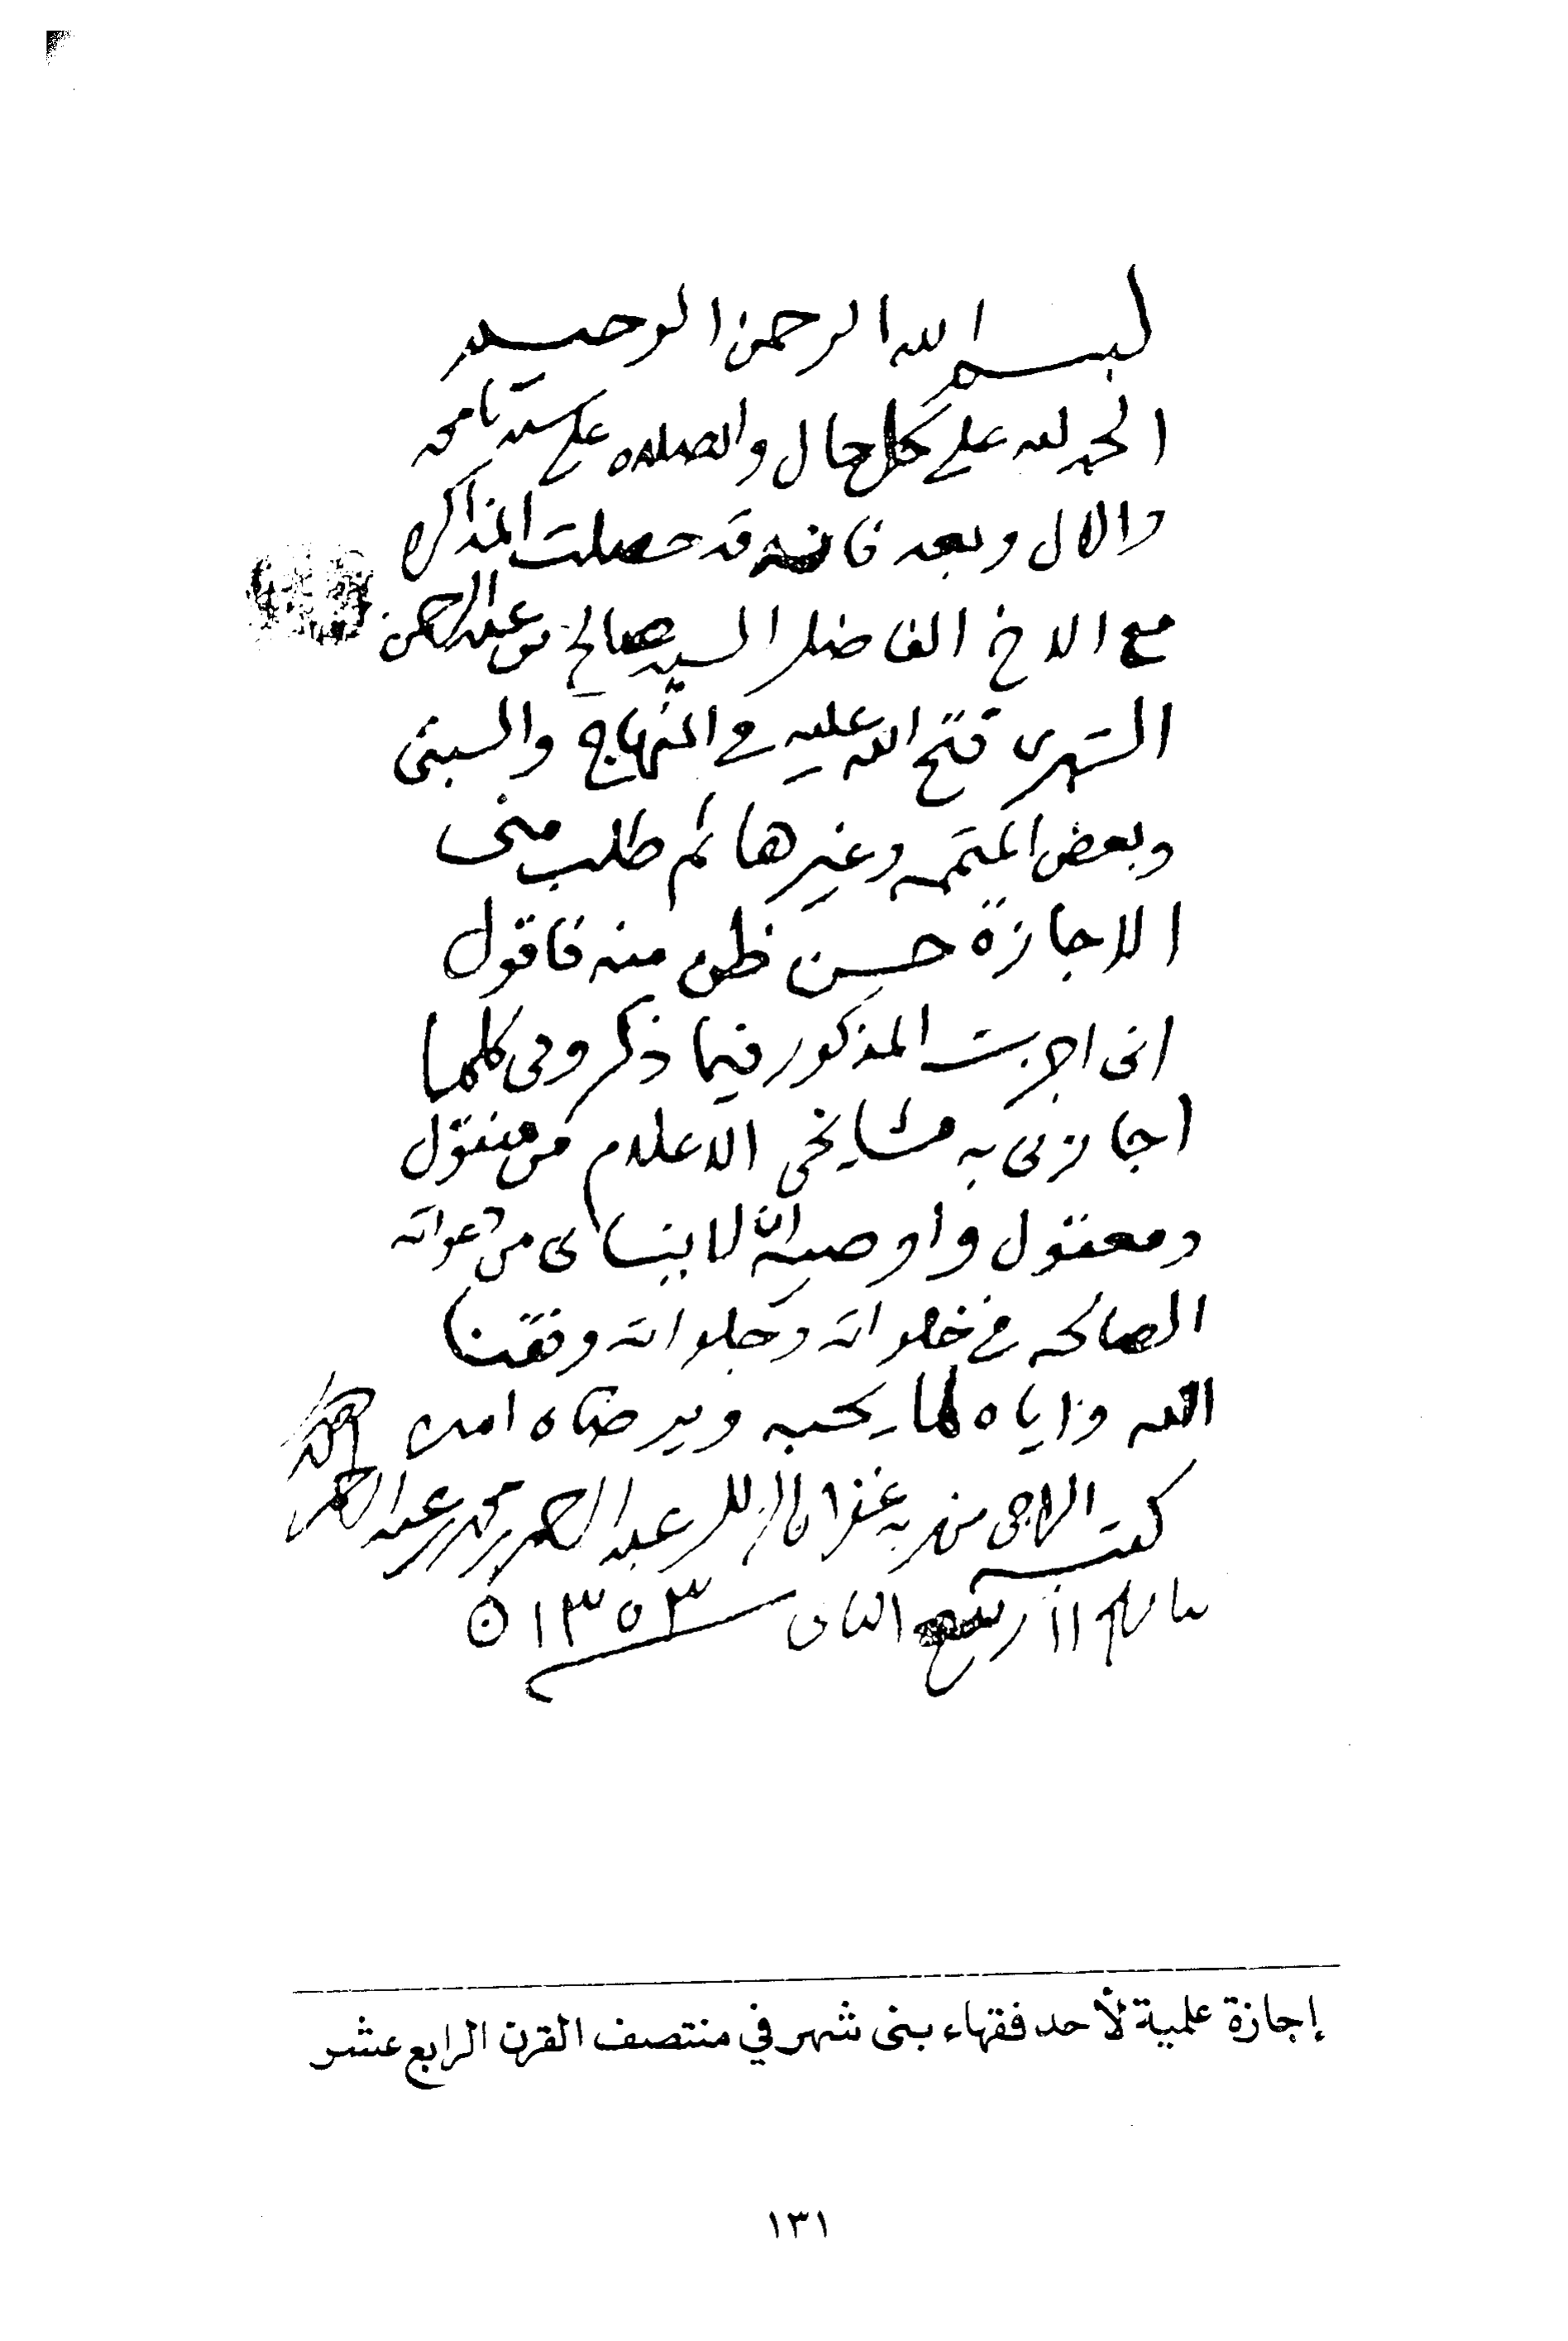 بسم الله الرحمن الرحيم
الحمد لله على كل حال والصلاه على سيدنا محمد
والال وبعد فانه قد حصلت المذاكره
مع الاخ الفاضل السيد صالح بن عبدالرحمن
الشهرى فتح الله عليه في المنهاج والسبتى
وبعض المتممه وغيرها ثم طلب منى
الاجازة حسن ظن منه فاقول
انى اجزت المذكور فيما ذكر وفى كلما
اجازنى به مشايخى الاعلام من منقول
ومعقول واوصيه ان لا ينسانى من دعواته
الصالحه في خلواته وجلواته وفقنا
الله واياه لما يحبه ويرضاه امين
كتبه الراجى من ربه غفران الزلل عبدالرحمن بن محمد بن عبدالرحمن
بتاريخ ١١ ربيع الثانى ١٣٥٣ ه
إجازة علمية لأحد فقهاء بنى شهر في منتصف القرن الرابع عشر
١٣١